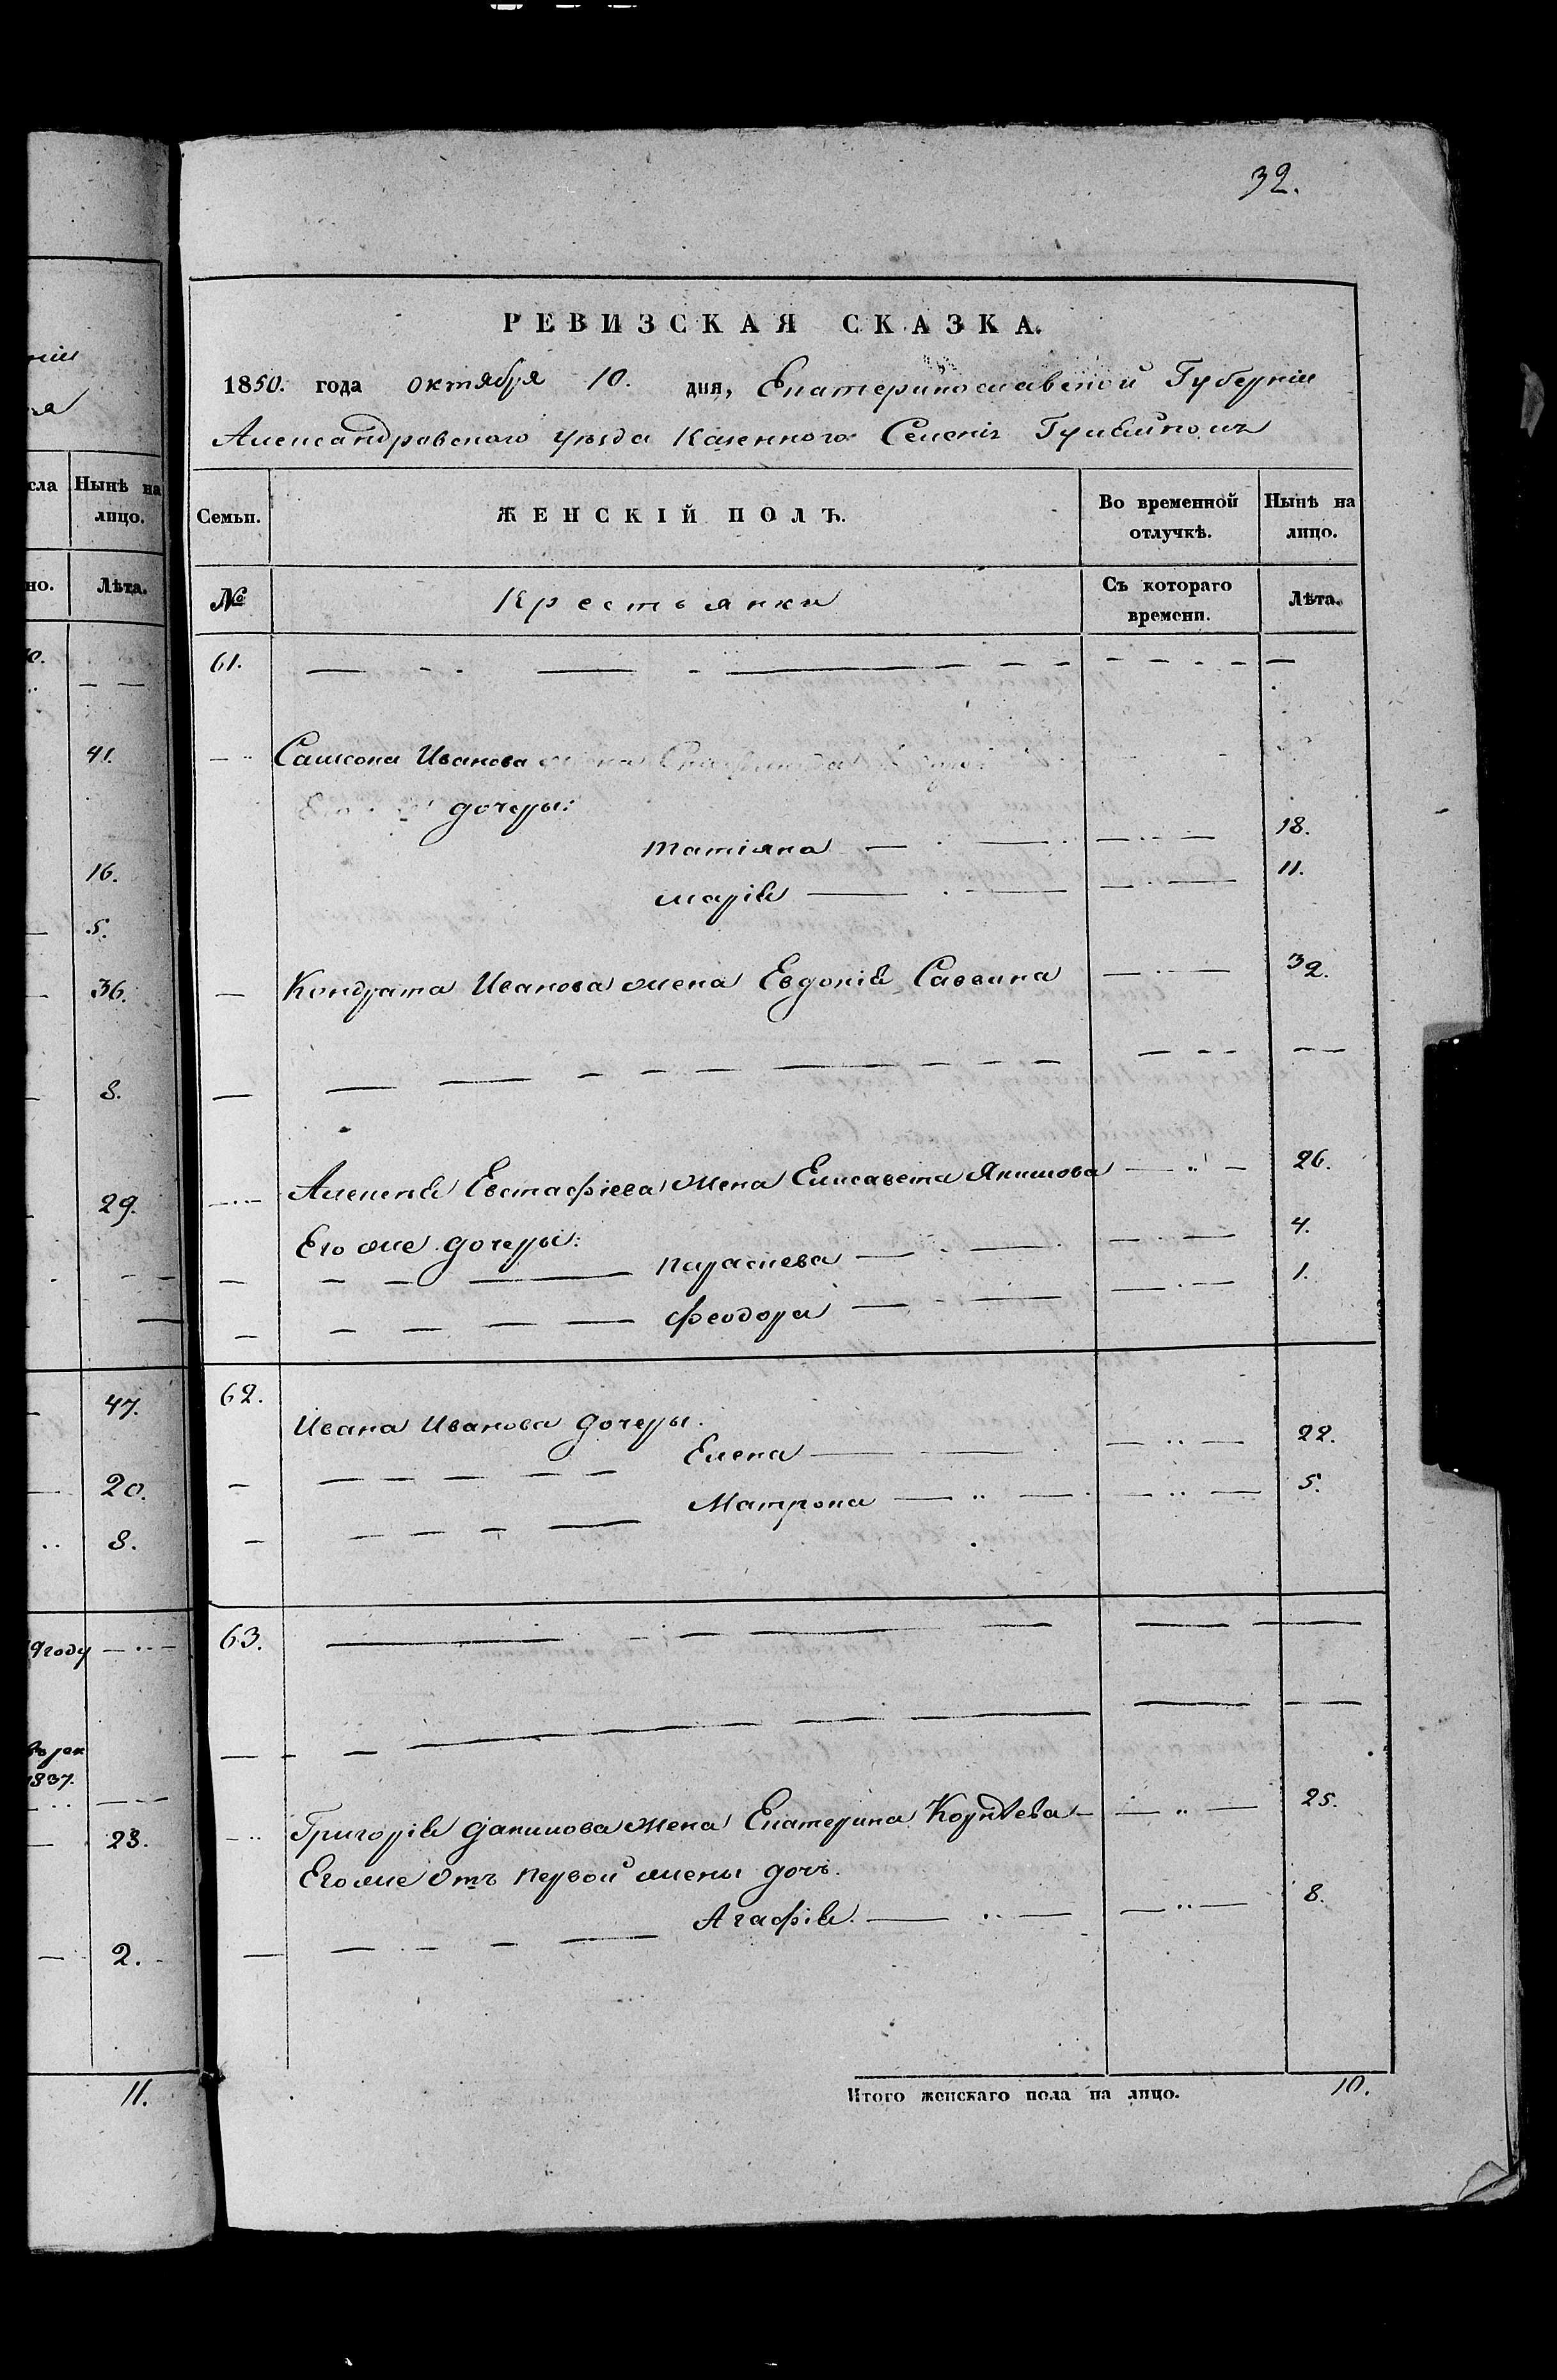 32.
РЕВИЗСКАЯ СКАЗКА.
1850. года октября 10. дня, Екатеринославской Губерніи
Александровского уѣзда Казенного Селенія
Семьи. ЖЕНСКІЙ ПОЛЪ. Во временной отлучкѣ. Нынѣ на лицо.
№ Крестьянки Съ котораго времени. Лѣта.
61.
Самсона Иванова
дочеры:
татіяна 18.
марія 11.
Кондрата Иванова жена Евдокія Саввина 32.
Алексея Евстафіева жена Елисавета Якимова 26.
Его же дочеры:
параскева 4.
феодора 1.
62.
Ивана Иванова дочеры.
Елена 22.
Матрона 5.
63.
Григорія данилова жена Екатерина Корнѣева 25.
Его же отъ первой жены дочь.
Агафія. 8.
Итого женскаго пола на лицо. 10.
сла Нынѣ на лицо.
но. Лѣта.
41.
16.
5.
36.
8.
29.
47.
20.
8.
9 году
1837.
23.
2.
11.